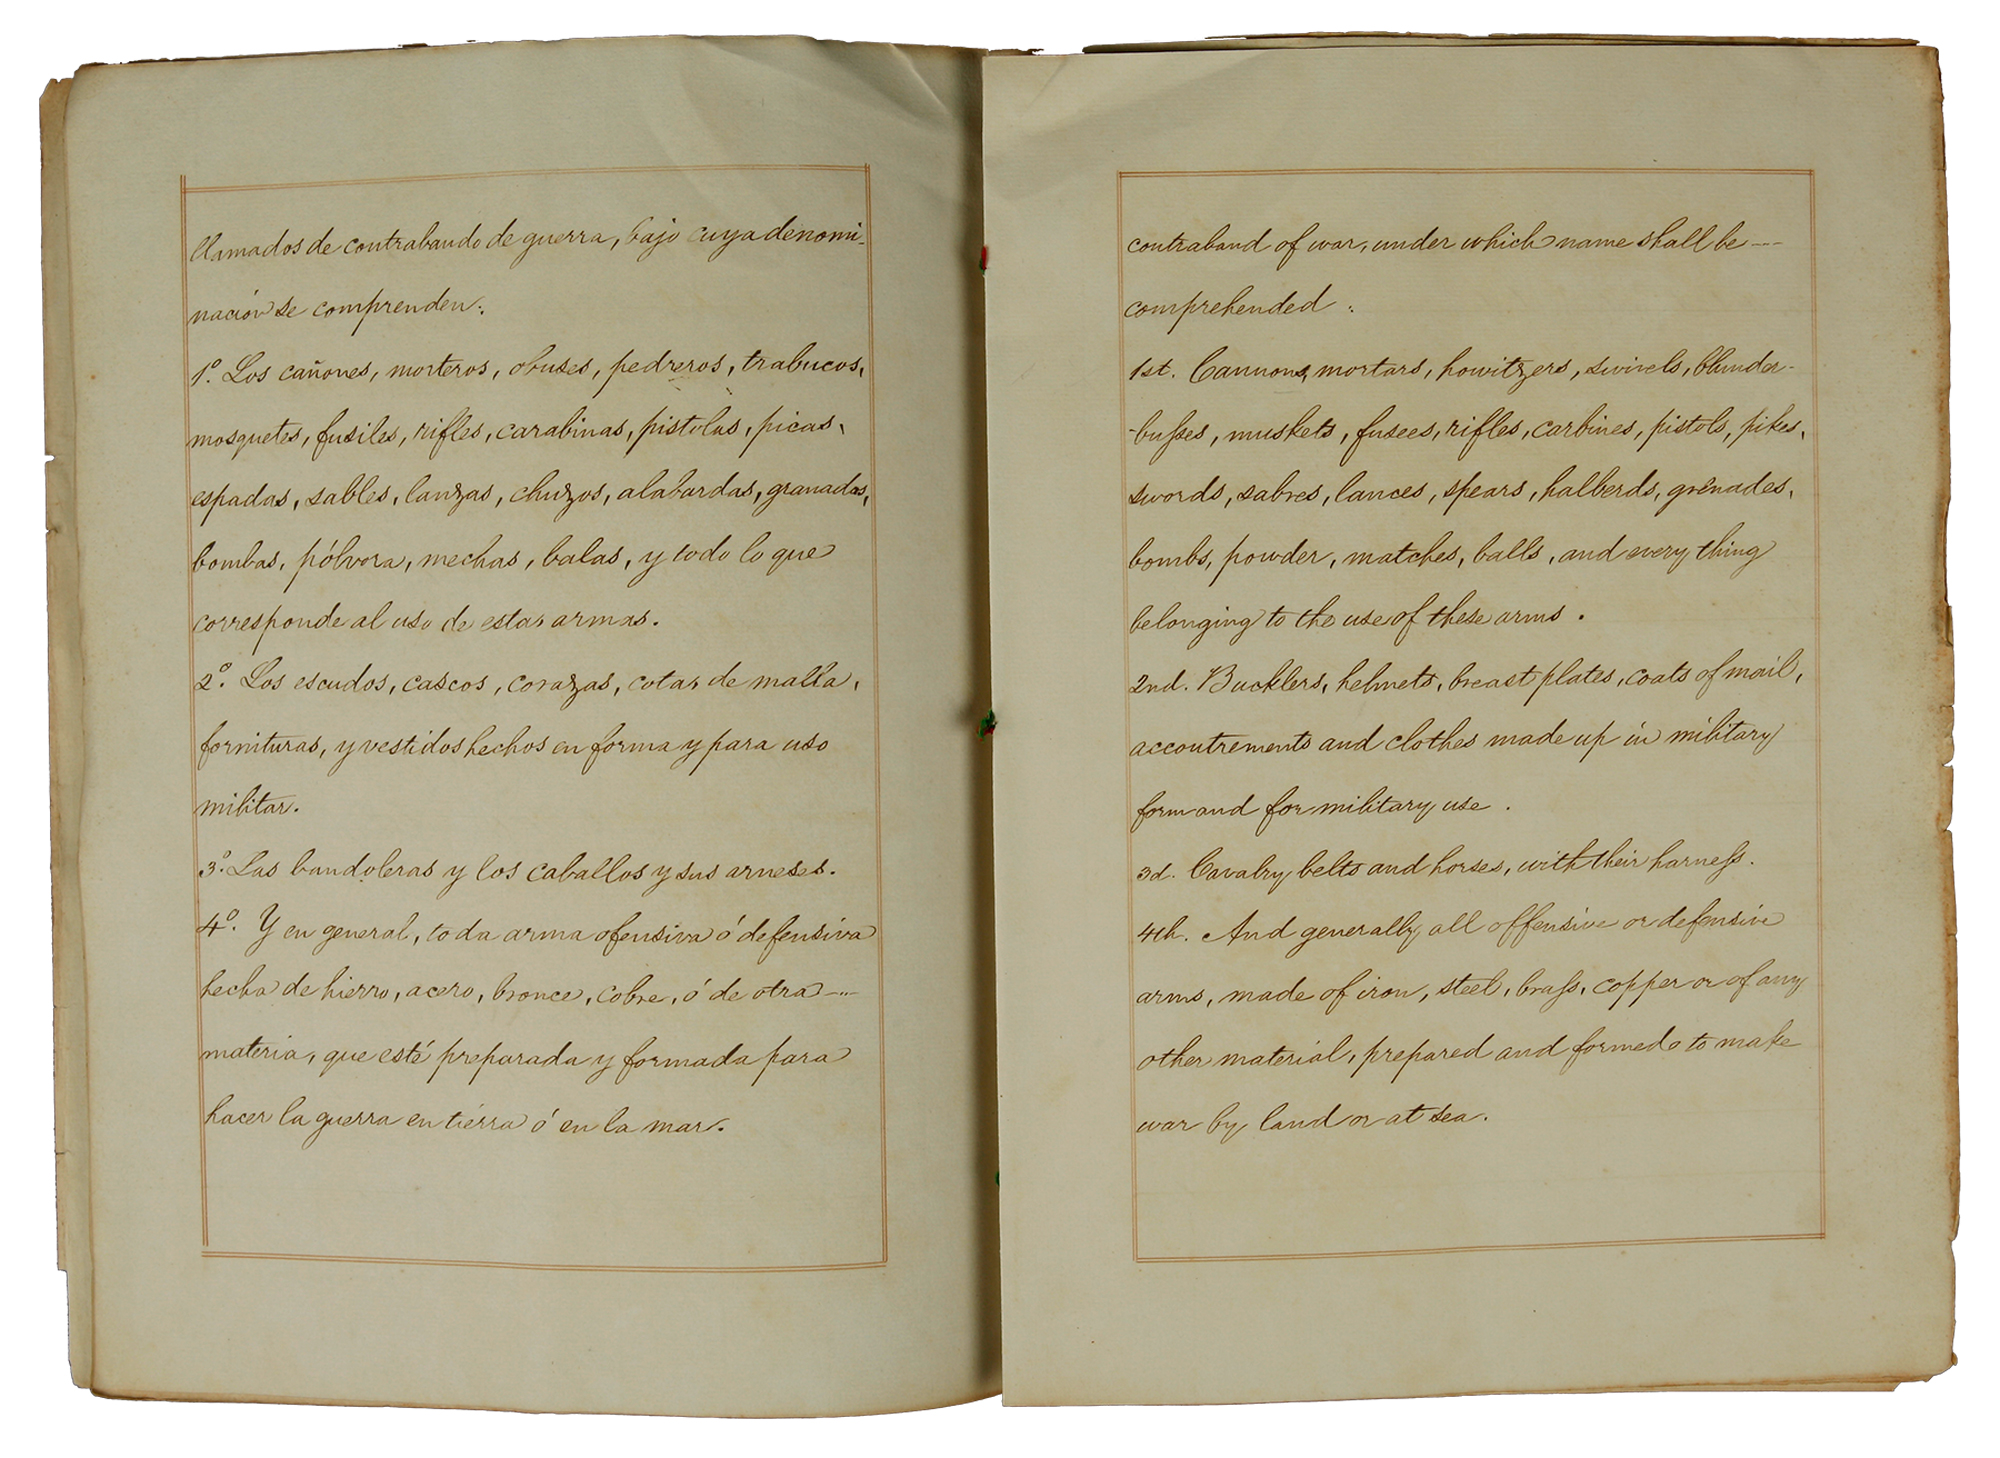 llamados de contrabando de guerra, bajo cuya denomi-
nación se comprenden:
1º. Los cañones, morteros, obuses, pedreros, trabucos,
mosquetes, fusiles, rifles, carabinas, pistolas, picas,
espadas, sables, lanzas, chuzos, alabardas, granadas,
bombas, pólvora, mechas, balas, y todo lo que
corresponde al uso de estas armas.
2º. Los escudos, cascos, corazas, cotas de malla,
fornituras, y vestidos hechos en forma y para uso
militar.
3º. Las bandoleras y los caballos y sus arneses.
4º. Y en general, toda arma ofensiva ó defensiva
hecha de hierro, acero, bronce, cobre, ó de otra --..
materia, que esté preparada y formada para
hacer la guerra en tierra ó en la mar.
contraband of war, under which name shall be ---
comprehended :
1st. Cannons, mortars, howitzers, swivels, blunder-
-buſses, muskets, fusees, rifles, carbines, pistols, pikes,
swords, sabres, lances, spears, halberds, grenades,
bombs, powder, matches, balls, and every thing
belonging to the use of these arms .
2nd. Bucklers, helmets, breast plates, coats of mail,
accoutrements and clothes made up in military
form and for military use .
3d. Cavalry belts and horses, with their harneſs.
4th. And generally all offensive or defensive
arms, made of iron, steel, braſs, copper or of any
other material, prepared and formed to make
war by land or at sea.